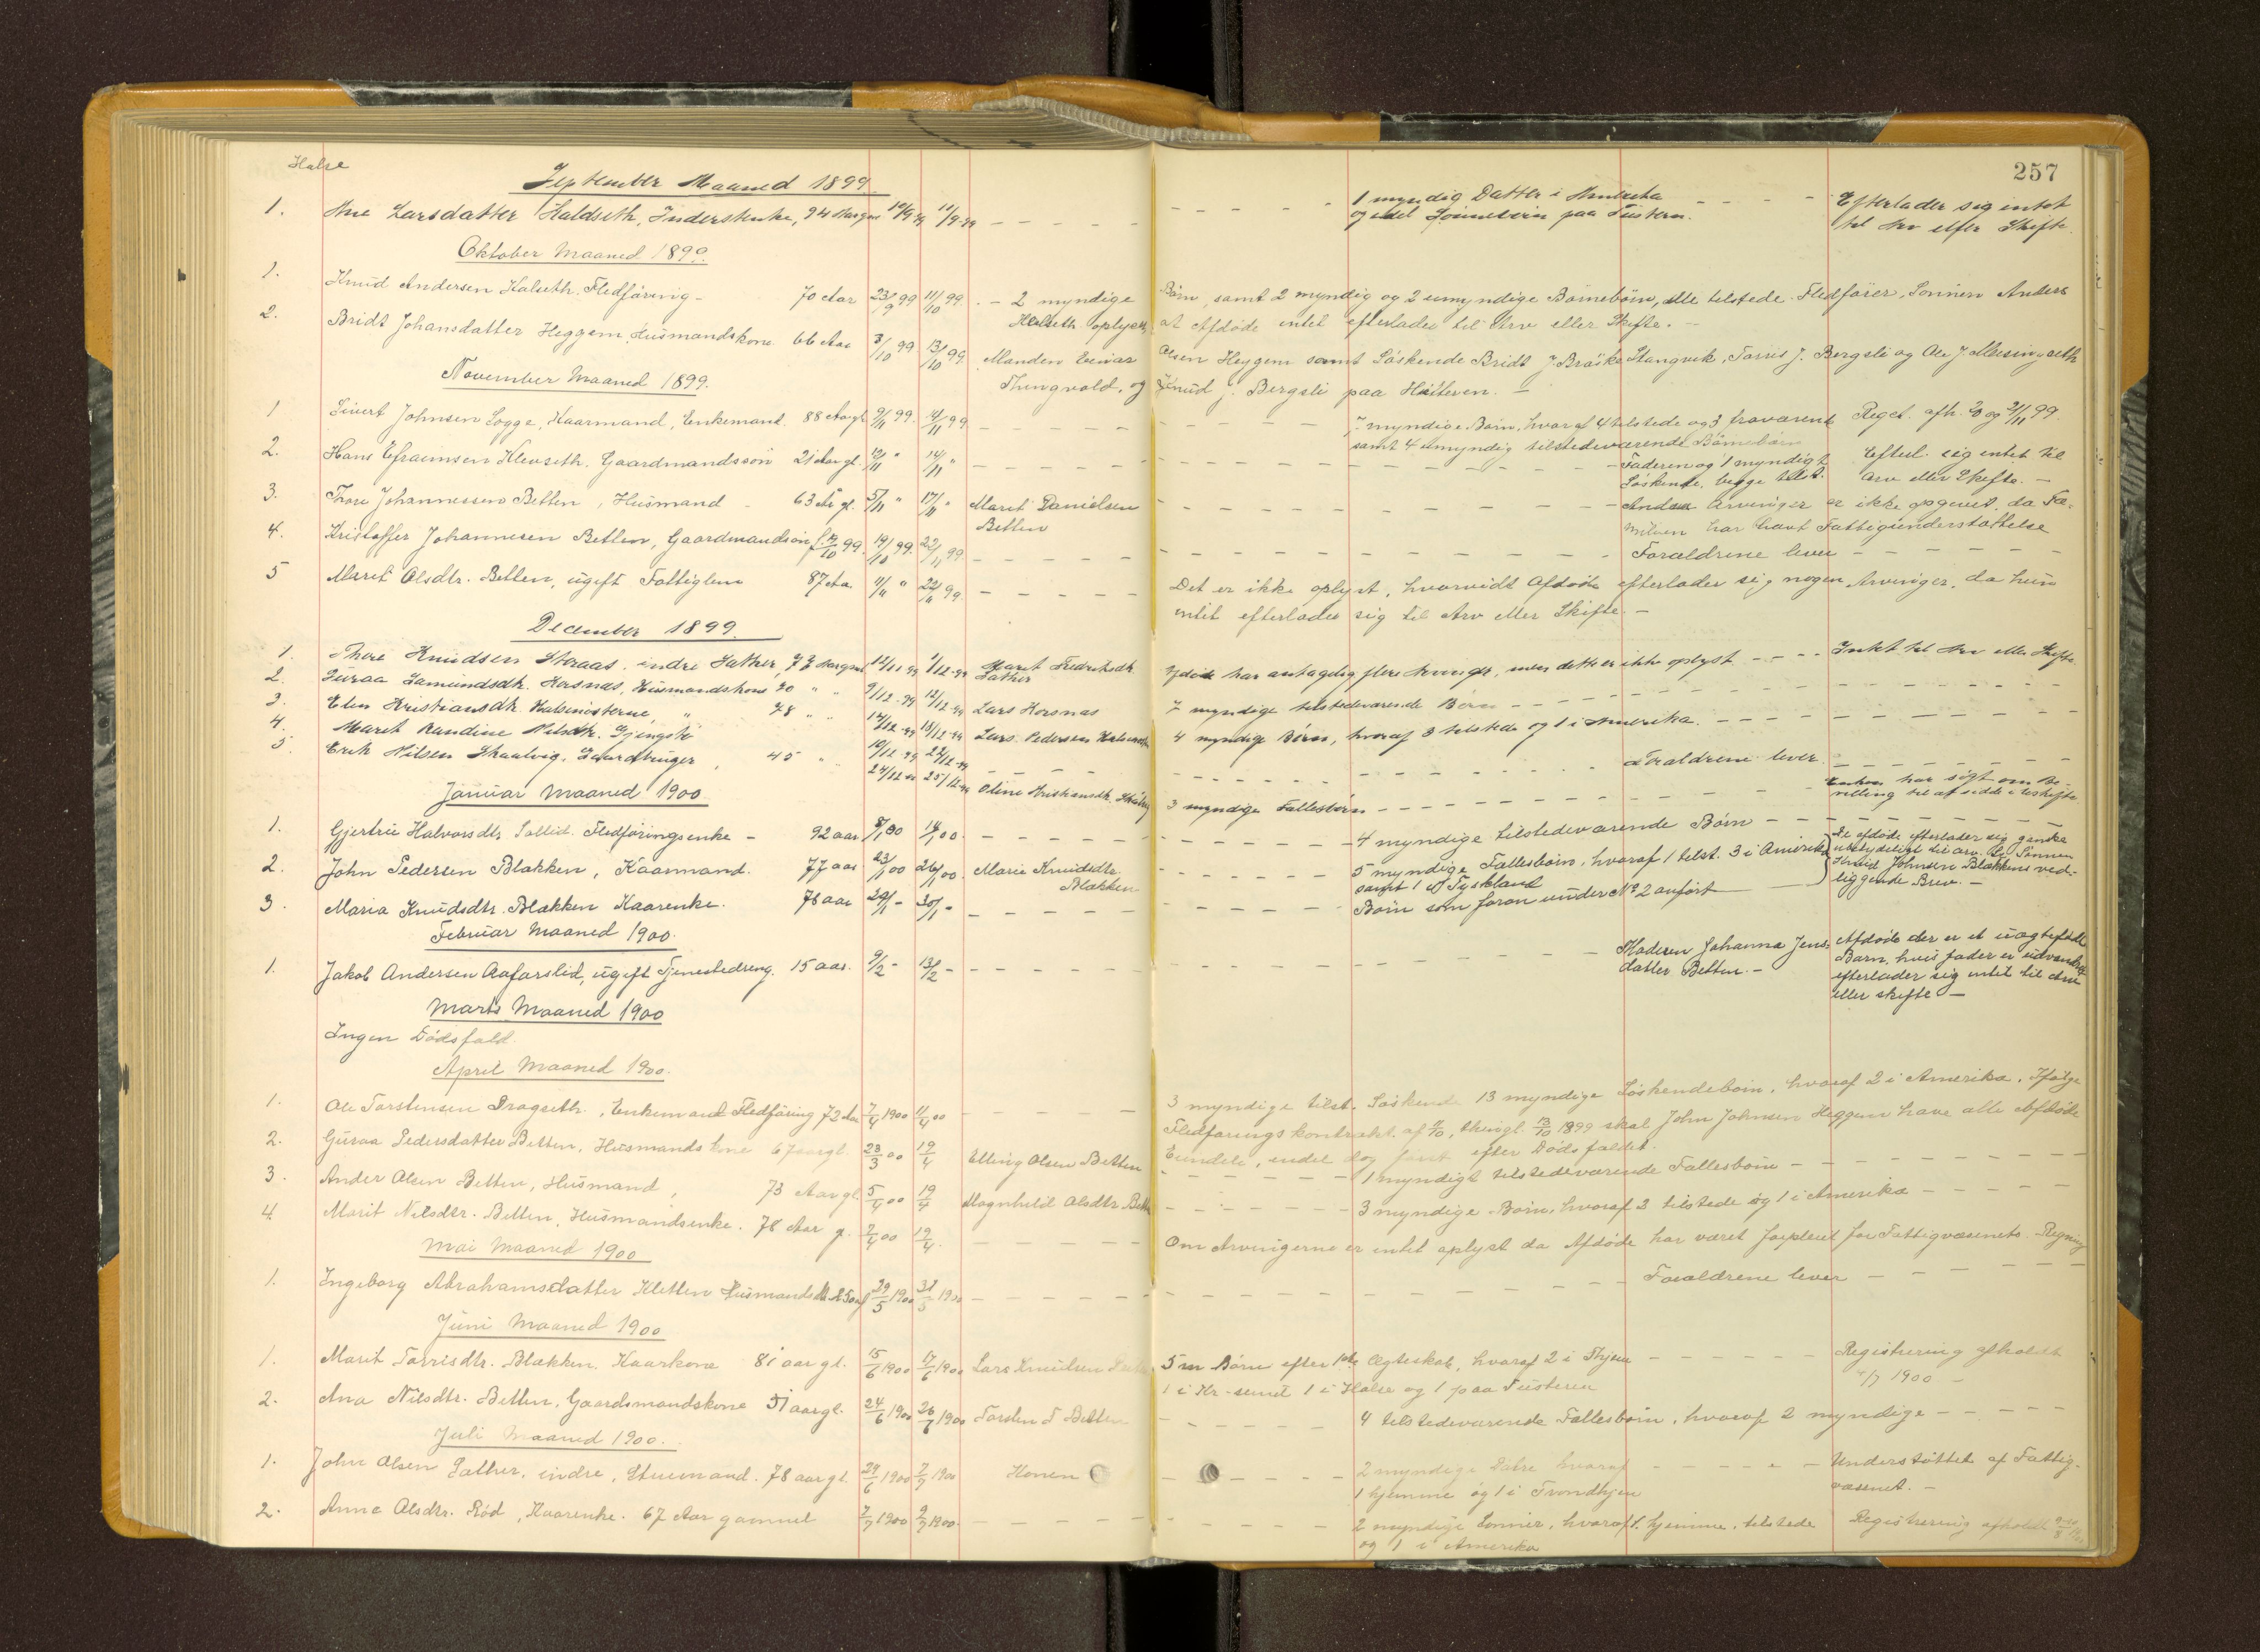 Halse
257
September Maaned 1899.
1. Ane Larsdatter Haldseth, Inderstenke, 94 Aar gml 10/9 99 11/9 99 – – – – – 1 myndig Datter i Amerika – – – – Efterlader sig intet
og endel Sønnebørn paa Tustern. til Arv eller Skifte.
Oktober Maaned 1899.
1. Knud Andersen Halseth, Fledføring – 70 Aar 23/9 99 11/10 99. – 2 myndige Børn, samt 2 myndig og 2 umyndige Børnebørn, alle tilstede. Fledfører, Sønnen Anders
Halseth oplyser, at Afdøde intet efterlader til Arv eller Skifte. –
2. Bridt Johansdatter Heggem, Husmandskone 66 Aar 3/10 99 13/10 99. Manden Einar Olsen Heggem samt Søskende Bridt J. Brøske Stangvik, Torris J. Bergsli og Ole J.
Thingvold, og Knud J. Bergsli paa Hitteren. –
November Maaned 1899.
1 Sivert Johnsen Sogge, Kaarmand, Enkemand. 88 Aar gl. 9/11 99. 14/11 99 – – – – 7 myndige Børn, hvoraf 4 tilstede og 3 fraværende Regst. afh. og 21/11 99.
samt 4 umyndig tilstedeværende Børnebørn
2. Hans Efraimsen Klevseth, Gaardmandssøn 21 Aar gl. 12/11 " 14/11 " – – – – Faderen og 1 myndigt Efterl. sig intet til
Søskende, begge tilst. Arv eller Skifte. –
3. Thore Johannessen Betten, Husmand – 63 Ar gl. 5/11 " 17/11 " Marit Danielsen – – – – Andre Arvinger er ikke opgivet, da Fa-
Betten milien har havt Fattigunderstøttelse
4. Kristoffer Johannesen Betten, Gaardmandsøn f. 14/10 99. 19/10 99. 22/11 99. – – – – Forældrene lever – – – –
5 Marit Olsdtr. Betten, ugift Fattiglem 87 Aar 11/11 " 22/11 99. – – – – Det er ikke oplyst, hvorvidt Afdøde efterlader sig nogen Arvinger, da hun
intet efterlader sig til Arv eller Skifte. –
December 1899.
1. Thore Knudsen Aaraas, indre Sæther, 73 Aar gml 12/11 99 1/12 99 Marit Fredriksdtr. Afdøde har antagelig flere Arvinger, men dette er ikke oplyst – – – – Intet til Arv eller Skifte.
Sæther
2. Guraa Samundsdtr. Korsnæs, Husmandskone 70 " " 9/12 99 12/12 99 Lars Korsnæs 7 myndige tilstedeværende Børn – – – –
3. Elen Kristiansdtr. Halsenøsterne, " 78 " " 14/12 99 18/12 99 Lars Pedersen 4 myndige Børn, hvoraf 3 tilstede og 1 i Amerika. – – – –
4. Marit Randine Nilsdtr. Gjengsti 19/12 99 22/12 99 – – – Forældrene lever. – – – –
5. Erik Nilsen Skaalvig, Gaardbruger, 45 " " 24/12 99 25/12 99 Oline Kristiansdtr. 3 myndige Fællesbørn – – – – Enken har søgt om Be-
villing til at sidde i uskifte
Januar Maaned 1900.
1. Gjertrie Halvorsdtr. Sollid, Fledføringsenke – 92 aar 8/1 00 14/1 00. – – – – 4 myndige tilstedeværende Børn – – – –
2. John Pedersen Blakken, Kaarmand. 77 aar 23/1 00 26/1 00. Marie Knudsdtr. 5 myndige Fællesbørn, hvoraf 1 tilst. 3 i Amerika De afdøde efterlader sig ganske
Blakken samt 1 i Tyskland ubetydeligt til arv. Se Sønnen
Knud Johnsen Blakkens ved-
3. Maria Knudsdtr. Blakken Kaarenke. 78 aar 29/1 – 30/1 – – – – – Børn som foran under No 2 anført liggende Brev. –
Februar Maaned 1900.
1. Jakob Andersen Aafarslid, ugift Tjenestedreng. 15 aar. 9/2 – 13/2 – – – – – Moderen Johanna Jens- Afdøde der er et uægtefødt
datter Betten. – Barn, hvis fader er udvandret
efterlader sig intet til Arv
eller skifte –
Marts Maaned 1900
Ingen Dødsfald.
April Maaned 1900.
1. Ole Torstensen Dragseth, Enkemand Fledføring 72 Aar 7/4 1900 11/4 00 – – – 3 myndige tilst. Søskende 13 myndige Søskendebørn, hvoraf 2 i Amerika. Ifølge
Fledføringskontrakt af 4/10, thingl. 13/10 1899 skal John Johnsen Heggem have alle Afdøde
Eiendele, endel dog først efter Dødsfaldet.
2. Guraa Pedersdatter Betten, Husmandskone 67 aar gl. 23/3 00 19/4 Elling Olsen Betten – – – – 1 myndigt tilstedeværende Fællesbørn – – – –
3. Ander Olsen Betten, Husmand, 73 Aar gl. 5/4 00 19/4 Magnhild Olsdtr. Bett – – – – 3 myndige Børn, hvoraf 2 tilstede og 1 i Amerika – – – –
4. Marit Nilsdtr. Betten, Husmandsenke. 78 Aar g. 2/4 00 19/4. – – – – Om Arvingerne er intet oplyst da Afdøde har været forpleiet for Fattigvæsenets Regning
Mai Maaned 1900
1. Ingeborg Abrahamsdatter Kletten Husmandsdtr. 29/5 1900 31/5 1900 – – – – Forældrene lever – – – –
Juni Maaned 1900
1. Marit Torrisdtr. Blakken. Kaarkone 81 aar gl. 15/6 1900 17/6 1900 Lars Knudsen 5 m Børn efter 1ste Ægteskab, hvoraf 2 i Thjem – – – – Registrering afholdt
1 i Kr-sund 1 i Halse og 1 paa Tusteren /7 1900 –
2. Ana Nilsdtr. Betten, Gaardmandskone 51 aar gl. 24/6 1900 26/6 1900 Torsten T Betten – – – – 4 tilstedeværende Fællesbørn, hvoraf 2 myndige – – – –
Juli Maaned 1900.
1. John Olsen Sæther, indre, Stuemand. 78 aar gl. 29/6 1900 7/7 1900 Konen – – – – 2 myndige Døtre hvoraf – – – – Understøttet af Fattig-
1 hjemme og 1 i Trondhjem væsenet. –
2. Anne Olsdtr. Rød, Kaarenke. 67 Aar gammel 7/7 1900 9/7 1900. – – – – 2 myndige Sønner, hvoraf 1 hjemme, tilstede Registrering afholdt
og 1 i Amerika